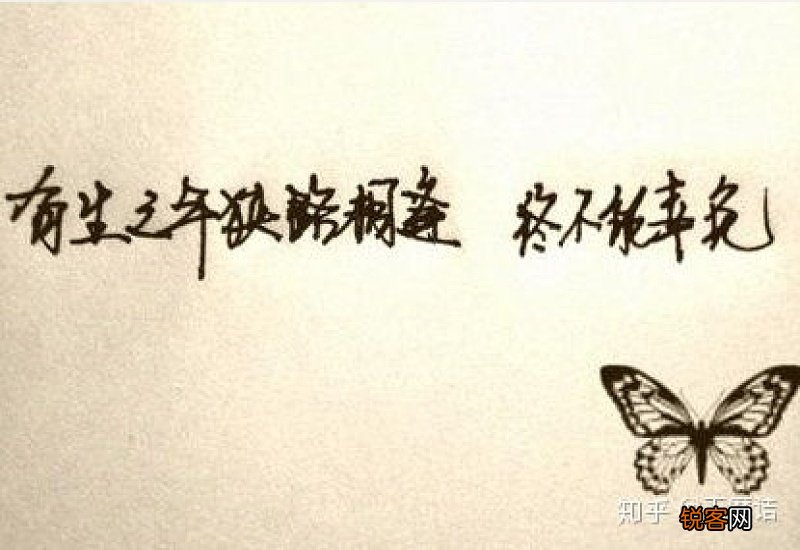 有生之年狭路相逢 终不能幸免
知乎
锐客网